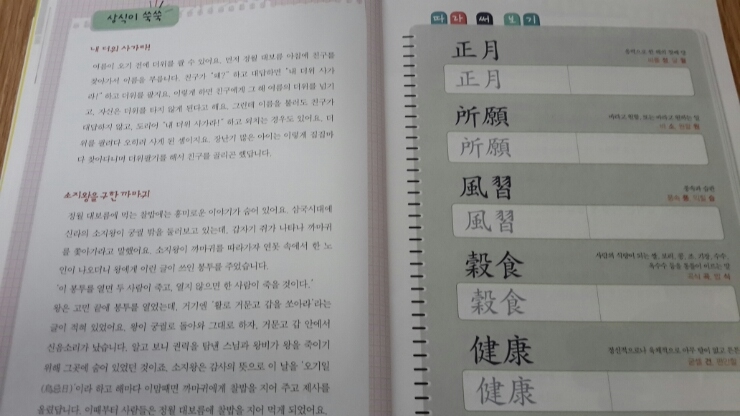 상식이 쑥쑥
내 더위 사가라!
여름이 오기 전에 더위를 팔 수 있어요. 먼저 정월 대보름 아침에 친구를
찾아가서 이름을 부릅니다. 친구가 “왜?” 하고 대답하면 “내 더위 사가
라!” 하고 더위를 팔지요. 이렇게 하면 친구에게 그 해 여름의 더위를 넘기
고, 자신은 더위를 타지 않게 된다고 해요. 그런데 이름을 불러도 친구가
대답하지 않고, 도리어 “내 더위 사가라!” 하고 외치는 경우도 있어요. 더
위를 팔려다 오히려 사게 된 셈이지요. 장난기 많은 아이는 이렇게 집집마
다 찾아다니며 더위팔기를 해서 친구를 골리곤 했답니다.
소지왕을 구한 까마귀
정월 대보름에 먹는 찰밥에는 흥미로운 이야기가 숨어 있어요. 삼국시대에
신라의 소지왕이 궁궐 밖을 둘러보고 있는데, 갑자기 쥐가 나타나 까마귀
를 쫓아가라고 말했어요. 소지왕이 까마귀를 따라가자 연못 속에서 한 노
인이 나오더니 왕에게 이런 글이 쓰인 봉투를 주었습니다.
‘이 봉투를 열면 두 사람이 죽고, 열지 않으면 한 사람이 죽을 것이다.’
왕은 고민 끝에 봉투를 열었는데, 거기엔 ‘활로 거문고 갑을 쏘아라’라는
글이 적혀 있었어요. 왕이 궁궐로 돌아와 그대로 하자, 거문고 갑 안에서
신음소리가 났습니다. 알고 보니 권력을 탐낸 스님과 왕비가 왕을 죽이기
위해 그곳에 숨어 있었던 것이죠. 소지왕은 감사의 뜻으로 이 날을 ‘오기일
(烏忌日)’이라 하고 해마다 이맘때면 까마귀에게 찰밥을 지어 주고 제사를
올렸답니다. 이때부터 사람들은 정월 대보름에 찰밥을 지어 먹게 되었어요.
따라 써 보기
正月
음력으로 한 해의 첫째 달
바를 正, 달 월
正月
所願
바라고 원함. 또는 바라고 원하는 일
바 소, 원할 원
所願
風習
풍속과 습관
풍속 風, 익힐 습
風習
穀食
사람의 식량이 되는 쌀, 보리, 콩, 조, 기장, 수수,
옥수수 등을 통틀어 이르는 말
곡식 곡, 밥 식
穀食
健康
정신적으로나 육체적으로 아무 탈이 없고 튼튼
굳셀 건, 편안할
健康